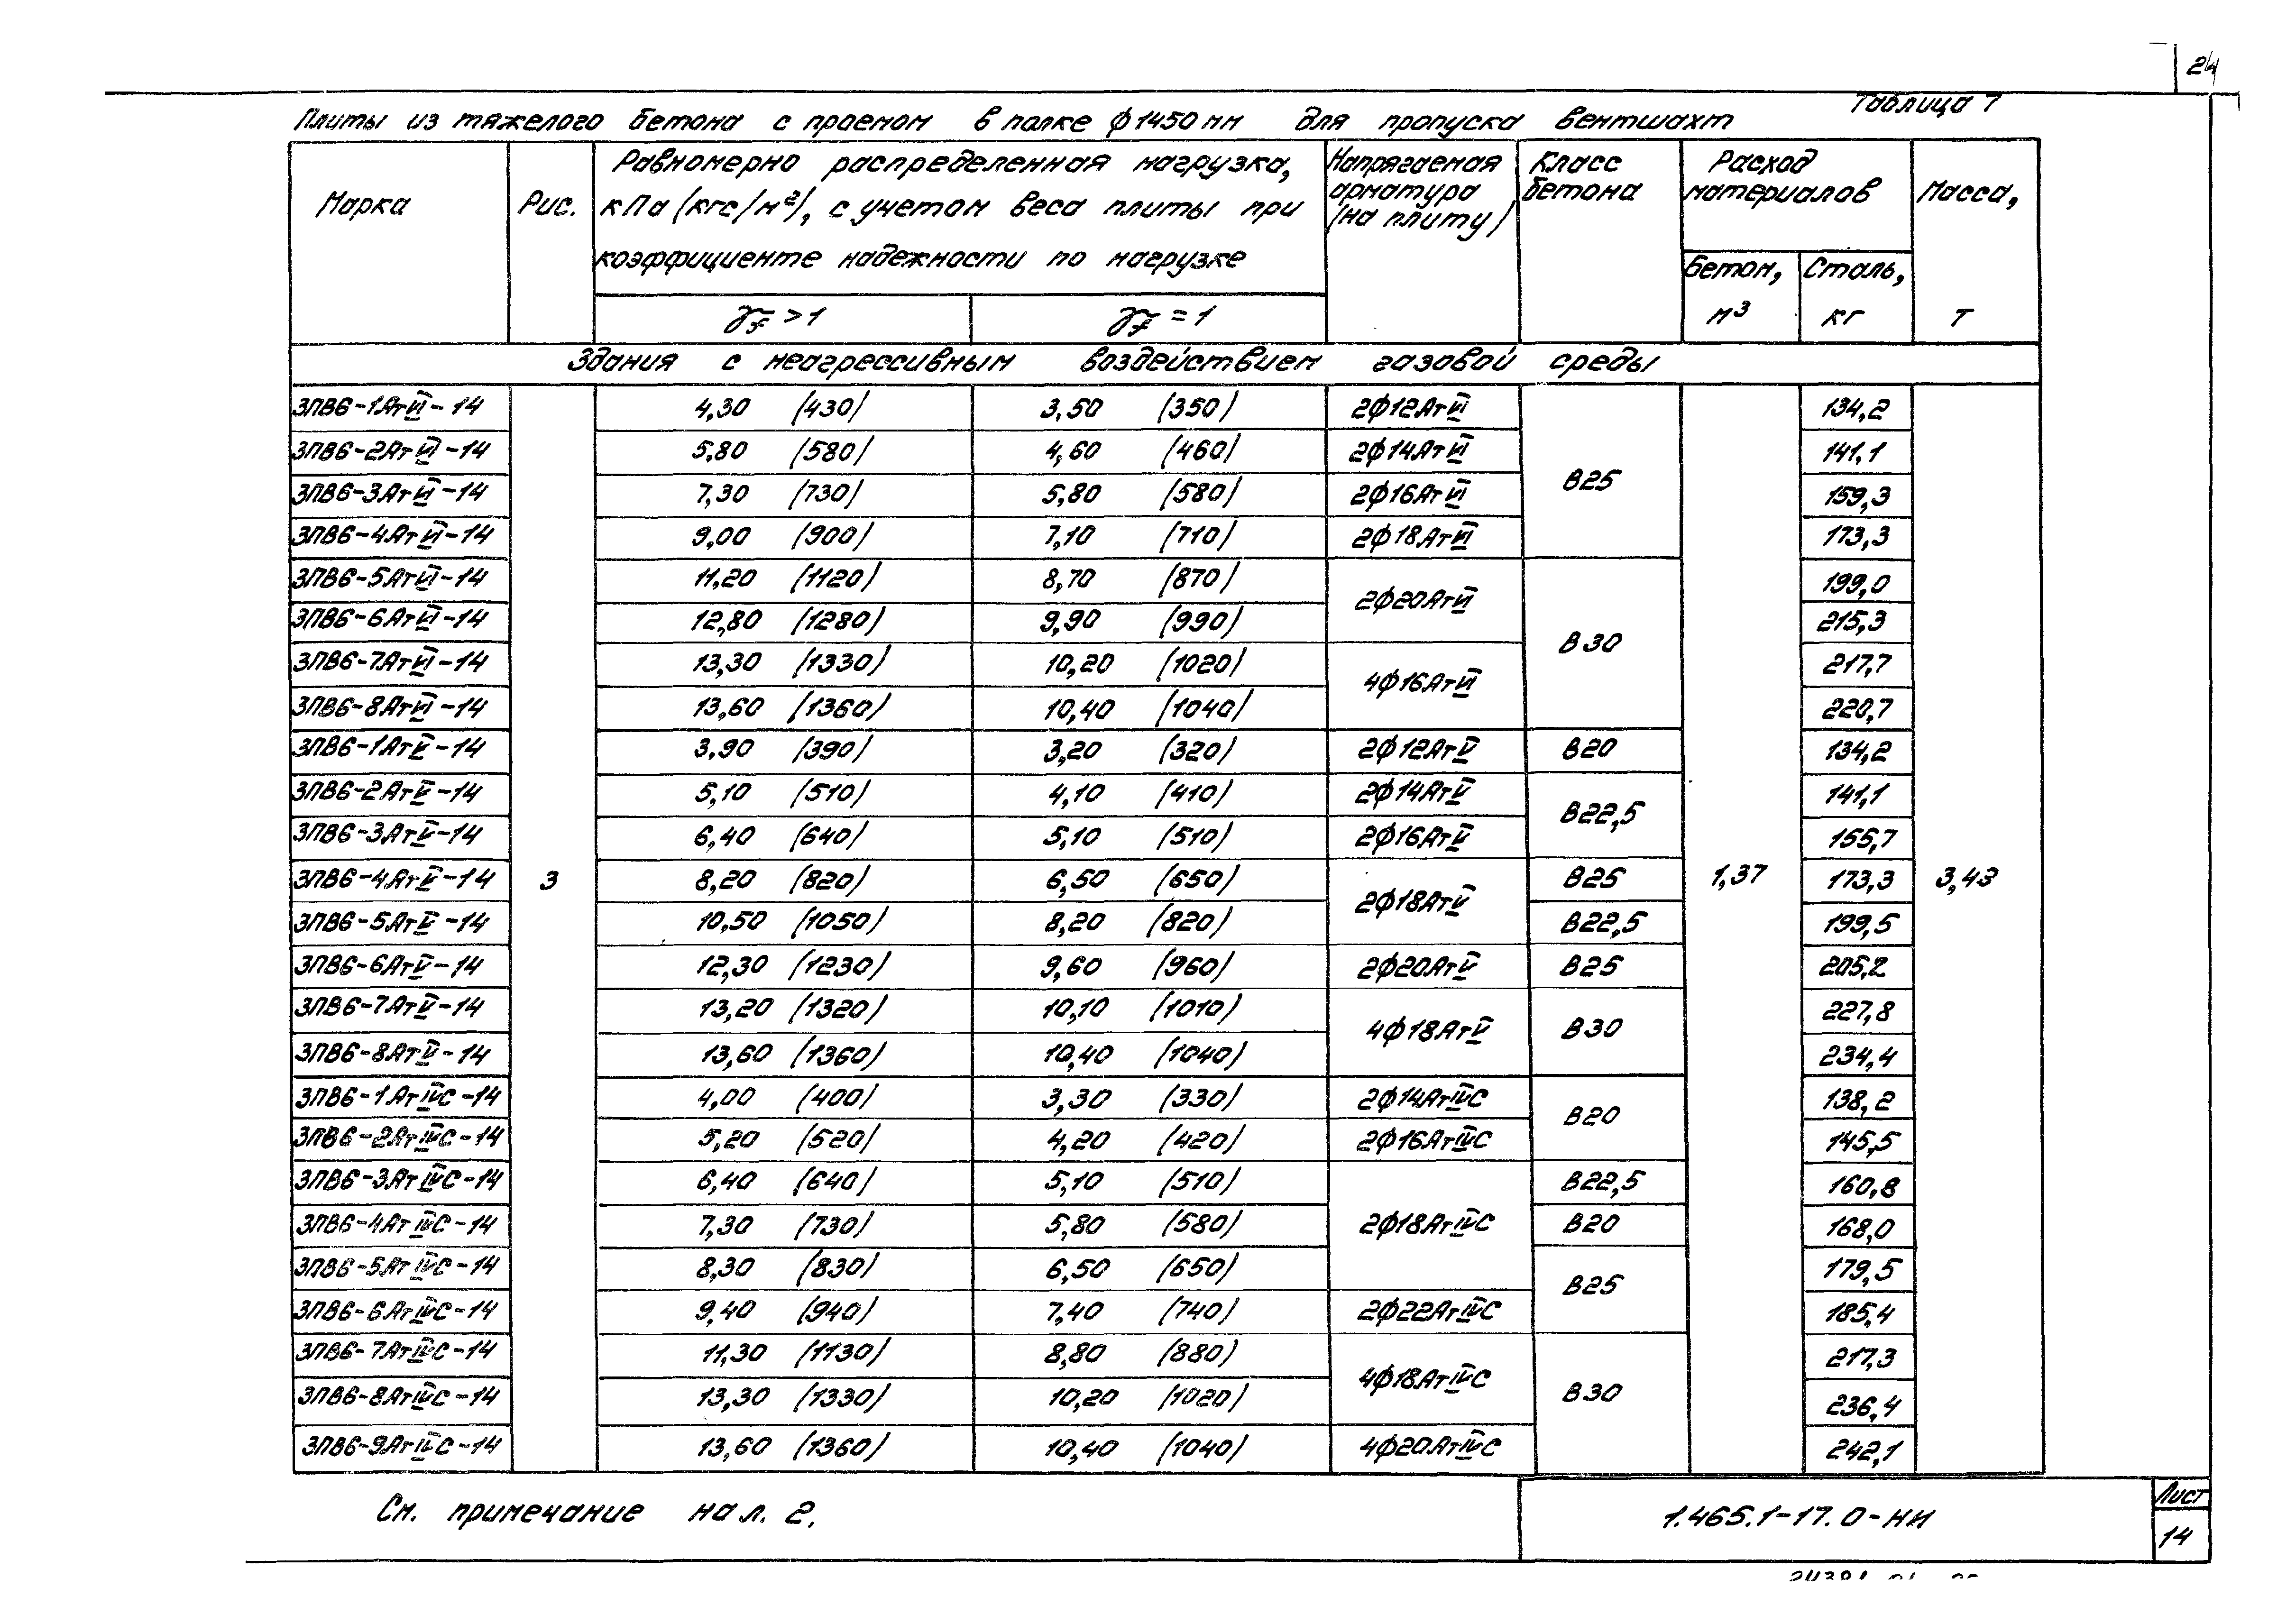 24
Таблица 7
Плиты из тяжелого бетона с проемом в полке ф1450 мм для пропуска вентшахт
Марка
Рис.
Равномерно распределенная нагрузка,
кПа (кгс/м²), с учетом веса плиты при
коэффициенте надежности по нагрузке
γf > 1
γf = 1
Напрягаемая
арматура
(на плиту)
Класс
бетона
Расход
материалов
Бетон,
м³
Сталь,
кг
Масса,
т
Здания с неагрессивным воздействием газовой среды
3ПВ6-1АтVI-14 4,30 (430) 3,50 (350) 2ф12АтVI 134,2
3ПВ6-2АтVI-14 5,80 (580) 4,60 (460) 2ф14АтVI 141,1
В25
3ПВ6-3АтVI-14 7,30 (730) 5,80 (580) 2ф16АтVI 159,3
3ПВ6-4АтVI-14 9,00 (900) 7,10 (710) 2ф18АтVI 173,3
3ПВ6-5АтVI-14 11,20 (1120) 8,70 (870) 199,0
2ф20АтVI
3ПВ6-6АтVI-14 12,80 (1280) 9,90 (990) 215,3
В30
3ПВ6-7АтVI-14 13,30 (1330) 10,20 (1020) 217,7
4ф16АтVI
3ПВ6-8АтVI-14 13,60 (1360) 10,40 (1040) 220,7
3ПВ6-1АтV-14 3,90 (390) 3,20 (320) 2ф12АтV В20 134,2
3ПВ6-2АтV-14 5,10 (510) 4,10 (410) 2ф14АтV 141,1
В22,5
3ПВ6-3АтV-14 6,40 (640) 5,10 (510) 2ф16АтV 155,7
3ПВ6-4АтV-14 3 8,20 (820) 6,50 (650) В25 1,37 173,3 3,43
2ф18АтV
3ПВ6-5АтV-14 10,50 (1050) 8,20 (820) В22,5 199,5
3ПВ6-6АтV-14 12,30 (1230) 9,60 (960) 2ф20АтV В25 205,2
3ПВ6-7АтV-14 13,20 (1320) 10,10 (1010) 227,8
4ф18АтV В30
3ПВ6-8АтV-14 13,60 (1360) 10,40 (1040) 234,4
3ПВ6-1АтIVС-14 4,00 (400) 3,30 (330) 2ф14АтIVС 138,2
В20
3ПВ6-2АтIVС-14 5,20 (520) 4,20 (420) 2ф16АтIVС 145,5
3ПВ6-3АтIVС-14 6,40 (640) 5,10 (510) В22,5 160,8
3ПВ6-4АтIVС-14 7,30 (730) 5,80 (580) 2ф18АтIVС В20 168,0
3ПВ6-5АтIVС-14 8,30 (830) 6,50 (650) 179,5
В25
3ПВ6-6АтIVС-14 9,40 (940) 7,40 (740) 2ф22АтIVС 185,4
3ПВ6-7АтIVС-14 11,30 (1130) 8,80 (880) 217,3
4ф18АтIVС
3ПВ6-8АтIVС-14 13,30 (1330) 10,20 (1020) В30 236,4
3ПВ6-9АтIVС-14 13,60 (1360) 10,40 (1040) 4ф20АтIVС 242,1
См. примечание на л. 2.
1.465.1-17.0-НИ
Лист
14